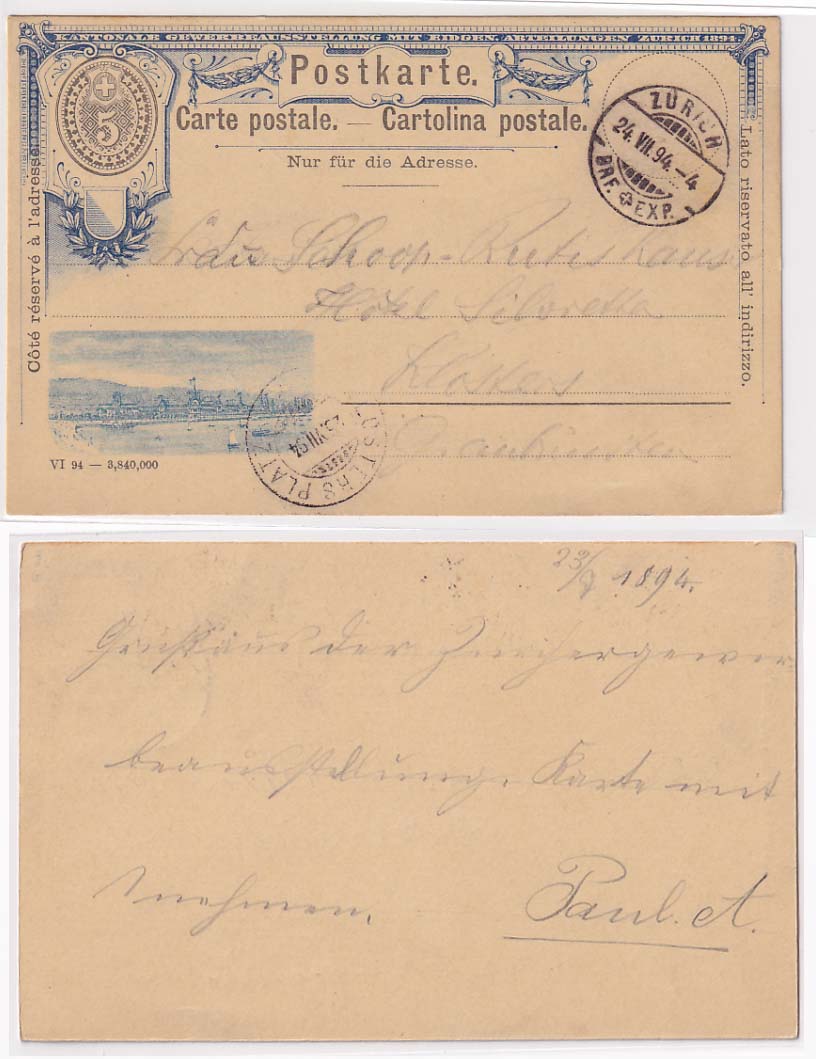 KANTONALE GEWERBEAUSSTELLUNG MIT EIDGEN. ABTEILUNGEN ZUERICH 1894
Postkarte.
Carte postale. — Cartolina postale.
Nur für die Adresse.
5
Côté réservé à l'adresse.
Lato riservato all' indirizzo.
ZÜRICH
24.VII.94.-4
BRF. EXP.
Frau Schoop-
Hôtel Silvretta
Klosters
Graubünden
KLOSTERS PLATZ
25.VII.94
VI 94 — 3,840,000
23/7 1894.
Gruss aus der Zürchergewer
beausstellung. Karte mit
nehmen.
Paul. A.